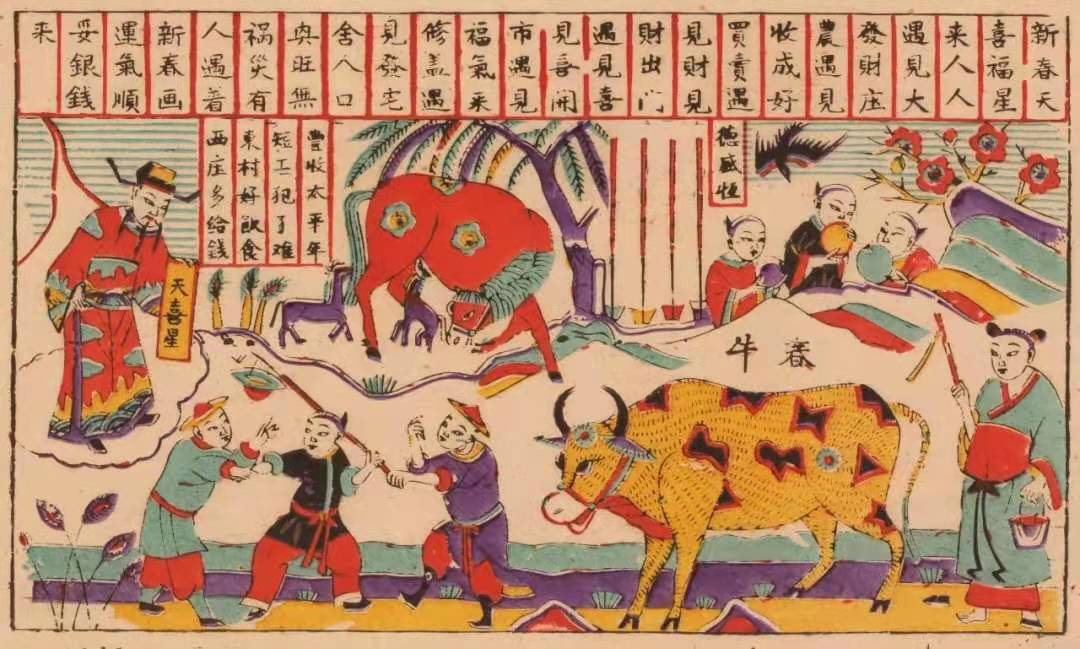 新春天
喜福星
来人人
遇見大
發財庄
農遇見
收成好
買賣遇
見財見
財出門
遇見喜
見喜開
市遇見
福氣来
修盖遇
見發宅
舍八口
興旺無
祸災有
人遇着
新春画
運氣順
妥銀錢
来
德盛恒
豊收太平年
短工犯了难
東村好飲食
西庄多给錢
天喜星
春牛